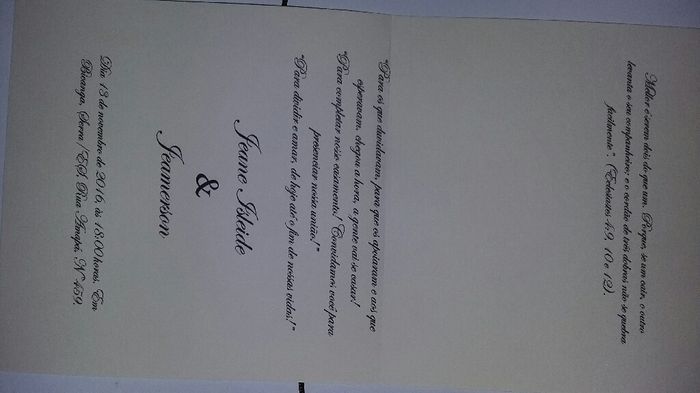 Melhor é serem dois do que um. Porque, se um cair, o outro
levanta o seu companheiro; e o cordão de três dobras não se quebra
facilmente". (Eclesiastes 4:9, 10 e 12).
"Para os que duvidavam, para que os apoiaram e aos que
esperavam, chegou a hora, a gente vai se casar!
"Para completar nosso casamento! Convidamos você para
presenciar nossa união!"
"Para dividir e amar, de hoje até o fim de nossas vidas!"
Jeane Isleide
&
Jeamerson
Dia 13 de novembro de 2016, às 18:00 horas. Em
Bicanga, Serra/ES, Rua Amapá, Nº 459.